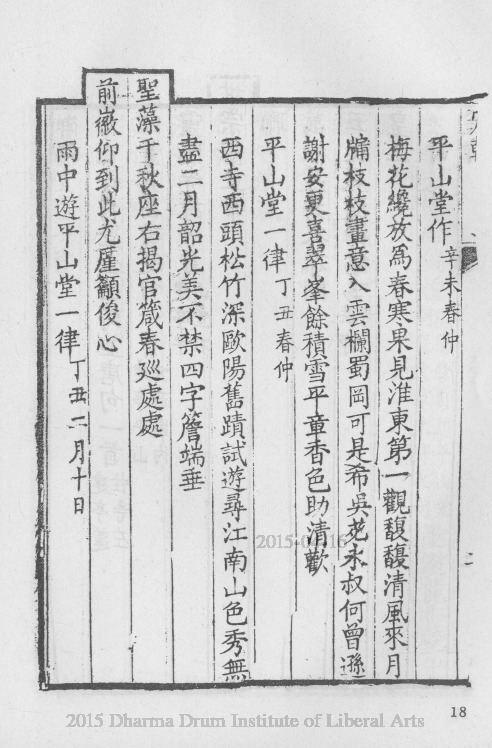 平山堂作辛未春仲
梅花纔放爲春寒果見淮東第一觀馥馥清風來月
牖枝枝畫意入雲欄蜀岡可是希吳苑永叔何曾遜
謝安更喜翠峯餘積雪平章香色助清歡
平山堂一律丁丑春仲
西寺西頭松竹深歐陽舊蹟試遊尋江南山色秀無
盡二月韶光美不禁四字簷端垂
聖藻千秋座右揭官箴春巡處處
前徽仰到此尤廑籲俊心
雨中遊平山堂一律丁丑二月十日
二
18
2015 Dharma Drum Institute of Liberal Arts